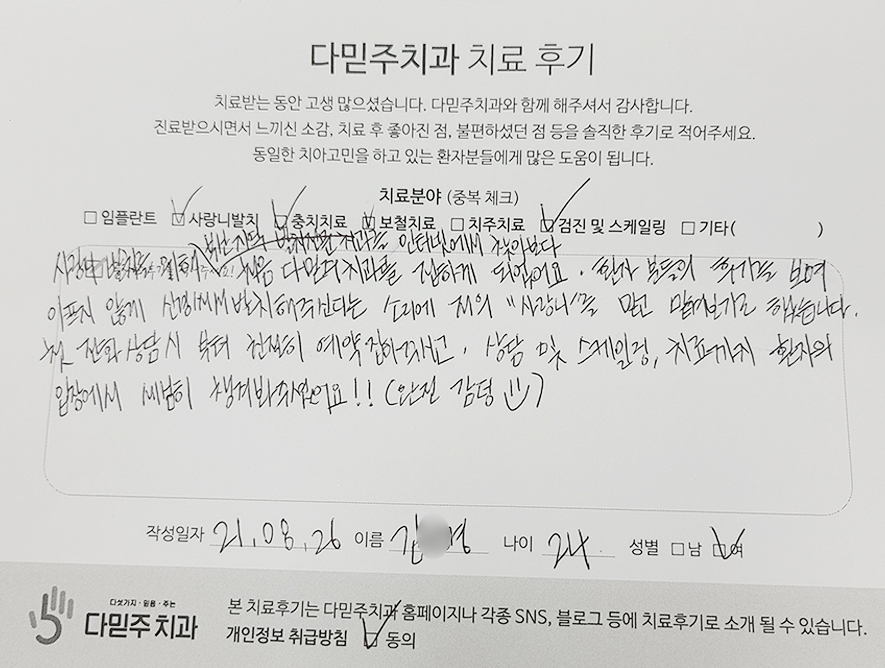 다믿주치과 치료 후기
치료받는 동안 고생 많으셨습니다. 다믿주치과와 함께 해주셔서 감사합니다.
진료받으시면서 느끼신 소감, 치료 후 좋아진 점, 불편하셨던 점 등을 솔직한 후기로 적어주세요.
동일한 치아고민을 하고 있는 환자분들에게 많은 도움이 됩니다.
치료분야 (중복 체크)
□ 임플란트 ☑ 사랑니발치 ☑ 충치치료 ☑ 보철치료 □ 치주치료 ☑ 검진 및 스케일링 □ 기타( )
치과를 인터넷에서 찾아보다
사랑니 발치를 처음 다믿주치과를 접하게 되었어요. 환자 분들의 후기를 보며
아프지 않게 신경써서 발치해주신다는 소리에 저의 "사랑니"를 믿고 맡겨보기로 했습니다.
첫 전화상담시 부터 친절히 예약 잡아주시고, 상담 및 스케일링, 치료까지 환자의
입장에서 세심히 챙겨봐주셨어요!! (완전 감덩 )
작성일자 21.08.26 이름 김 영 나이 24 성별 □남 ☑여
다섯가지·믿음·주는
다믿주치과
본 치료후기는 다믿주치과 홈페이지나 각종 SNS, 블로그 등에 치료후기로 소개 될 수 있습니다.
개인정보 취급방침 ☑ 동의